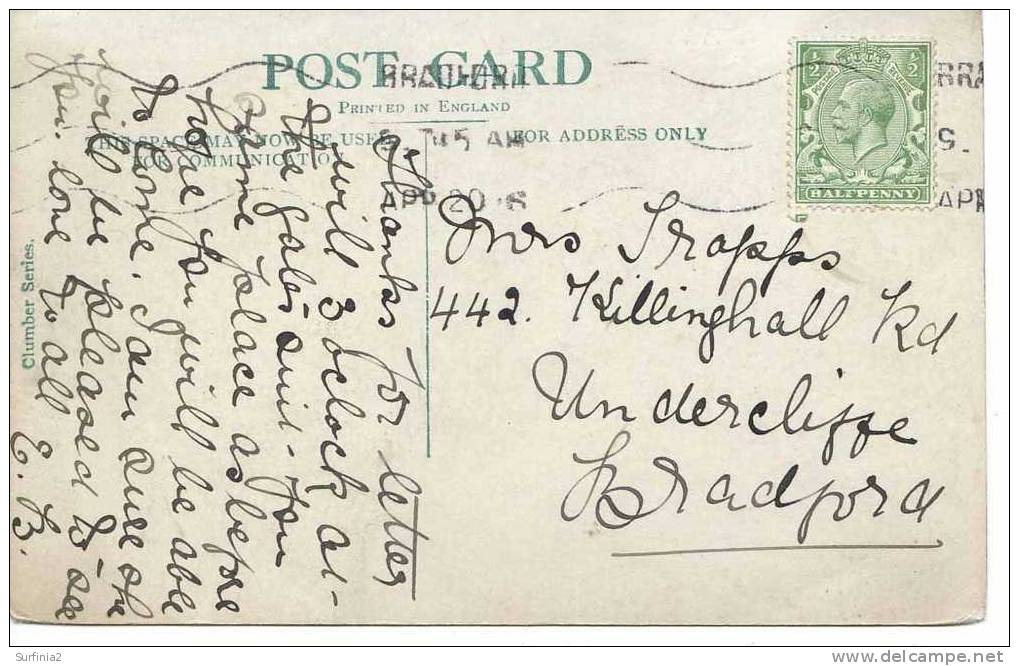 POST CARD
PRINTED IN ENGLAND
THIS SPACE MAY NOW BE USED
FOR COMMUNICATION
FOR ADDRESS ONLY
BRADFORD
45 AM
APR 20
BRA
S.
AP
½ ½
POSTAGE REVENUE
HALFPENNY
Clumber Series.
Thanks for letter
I will 3 oclock at-
the gates and you
same place as before
hope you will be able
to come. I am sure she
will be pleased to see
you. love to all
E. B.
Mrs Trapps
442. Killinghall Rd
Undercliffe
Bradford
Surfinia2
delcampe.net